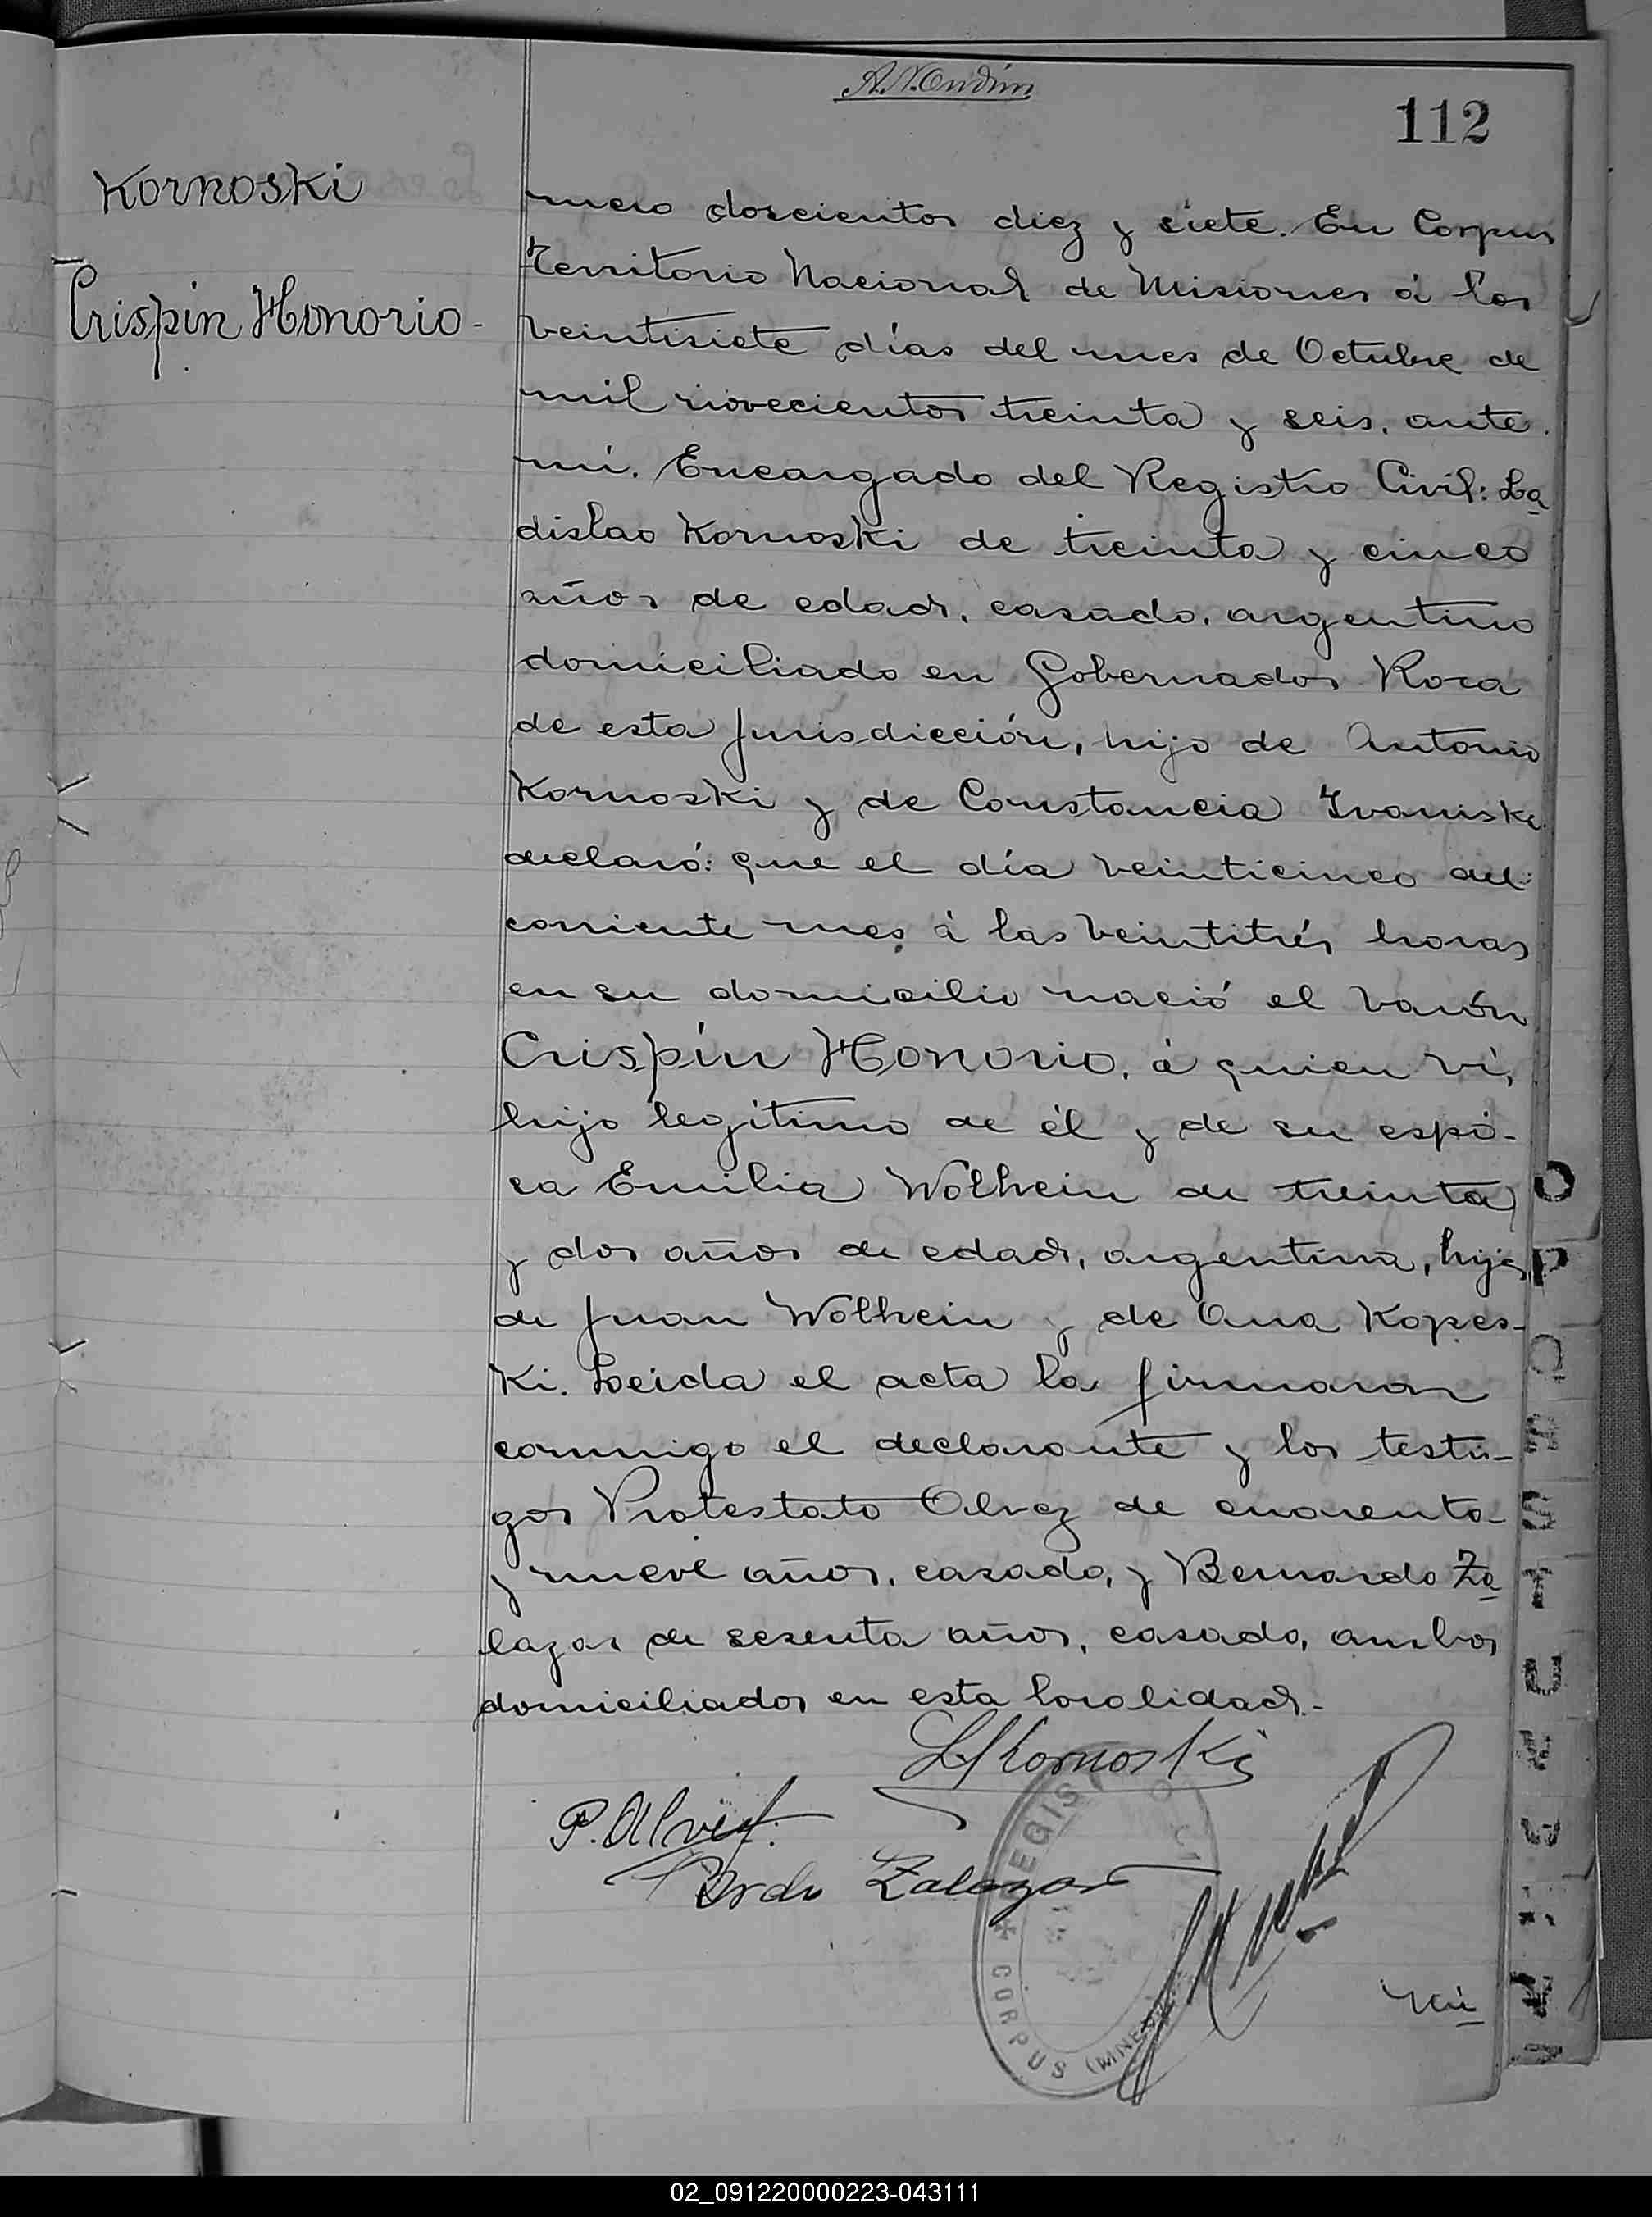 112
Kornoski
Crispín Honorio-
mero doscientos diez y siete. En Corpus
Territorio Nacional de Misiones á los
veintisiete días del mes de Octubre de
mil novecientos treinta y seis, ante
mí. Encargado del Registro Civil: La
dislao Kornoski de treinta y cinco
años de edad, casado, argentino
domiciliado en Gobernador Roca
de esta Jurisdicción, hijo de Antonio
Kornoski y de Constancia Ivaniski
declaró: que el día veinticinco del
corriente mes á las veintitrés horas
en su domicilio nació el varón
Crispín Honorio, á quien ví,
hijo legítimo de él y de su espo-
sa Emilia Wolhein de treinta
y dos años de edad, argentina, hija
de Juan Wolhein y de Ana Kopes-
ki. Leida el acta la firmaron
conmigo el declarante y los testi-
gos Protestato Alvez de cuarenta
y nueve años, casado, y Bernardo Za
lazar de sesenta años, casado, ambos
domiciliados en esta localidad.-
LKornoski
P. Alvez
Brdo Zalazar
REGIST O CI
CORPUS
Nú
02_091220000223-043111